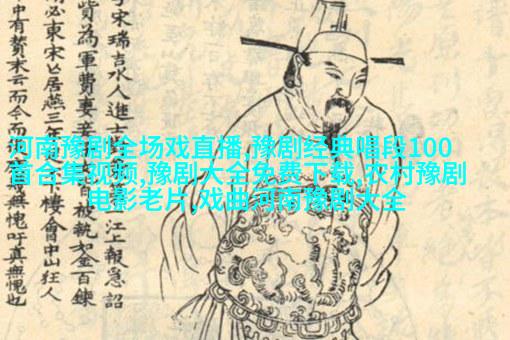 河南豫剧全场戏直播,豫剧经典唱段100
首合集视频,豫剧大全免费下载,农村豫剧
电影老片,戏曲河南豫剧大全
宋瑞吉水人進士江上報急詔
貲為軍費妻被執如金百鍊
必東宋亡居燕三年樓會中山狂人
中有贊末云而今而無愧吁真無愧也